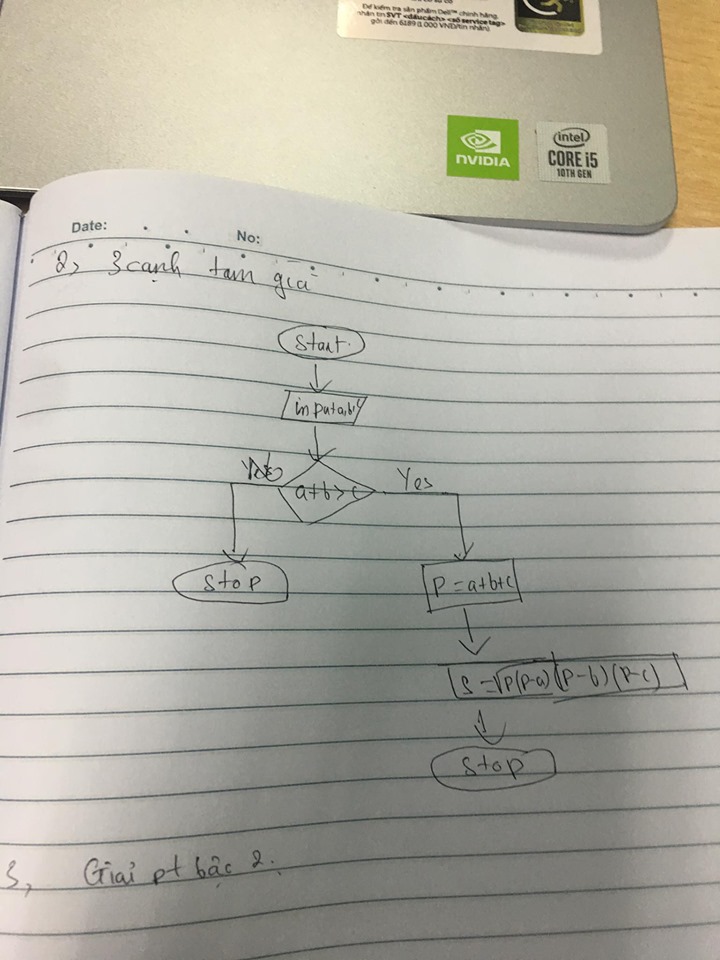 Để kiểm tra sản phẩm Dell™ chính hãng,
nhắn tin SVT <dấu cách> <số service tag>
gởi đến 6189 (1.000 VND/tin nhắn)
NVIDIA
intel
CORE i5
10TH GEN
Date:
No:
2, 3 cạnh tam giá
Start
input a,b,c
No
a+b>c
Yes
Stop
P = a+b+c
S = √P(P-a)(P-b)(P-c)
Stop
3, Giải pt bậc 2.